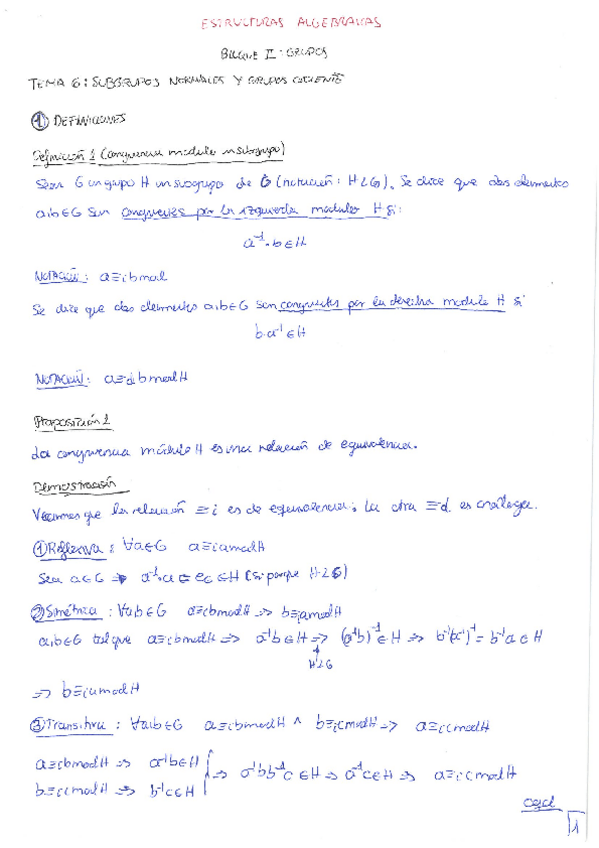 ESTRUCTURAS ALGEBRAICAS
BLOQUE II: GRUPOS
TEMA 6: SUBGRUPOS NORMALES Y GRUPOS COCIENTE
① DEFINICIONES
Definición 1 (Congruencia módulo un subgrupo)
Sean G un grupo H un subgrupo de G (notación: H≤G). Se dice que dos elementos
a,b∈G son congruentes por la izquierda módulo H si:
a⁻¹·b∈H
NOTACIÓN: a≡ᵢb mod
Se dice que dos elementos a,b∈G son congruentes por la derecha módulo H si
b·a⁻¹∈H
NOTACIÓN: a≡d b mod H
Proposición 1
La congruencia módulo H es una relación de equivalencia.
Demostración
Veamos que la relación ≡i es de equivalencia; la otra ≡d es análoga.
① Reflexiva: ∀a∈G a≡ᵢa mod H
Sea a∈G ⇒ a⁻¹·a = e_G ∈H (si porque H≤G)
② Simétrica: ∀a,b∈G a≡ᵢb mod H ⇒ b≡ᵢa mod H
a,b∈G tal que a≡ᵢb mod H ⇒ a⁻¹b∈H ⇒ (a⁻¹b)⁻¹∈H ⇒ b⁻¹(a⁻¹)⁻¹ = b⁻¹a∈H
H≤G
⇒ b≡ᵢa mod H
③ Transitiva: ∀a,b∈G a≡ᵢb mod H ∧ b≡ᵢc mod H ⇒ a≡ᵢc mod H
a≡ᵢb mod H ⇒ a⁻¹b∈H
b≡ᵢc mod H ⇒ b⁻¹c∈H } ⇒ a⁻¹bb⁻¹c∈H ⇒ a⁻¹c∈H ⇒ a≡ᵢc mod H
cqd
1